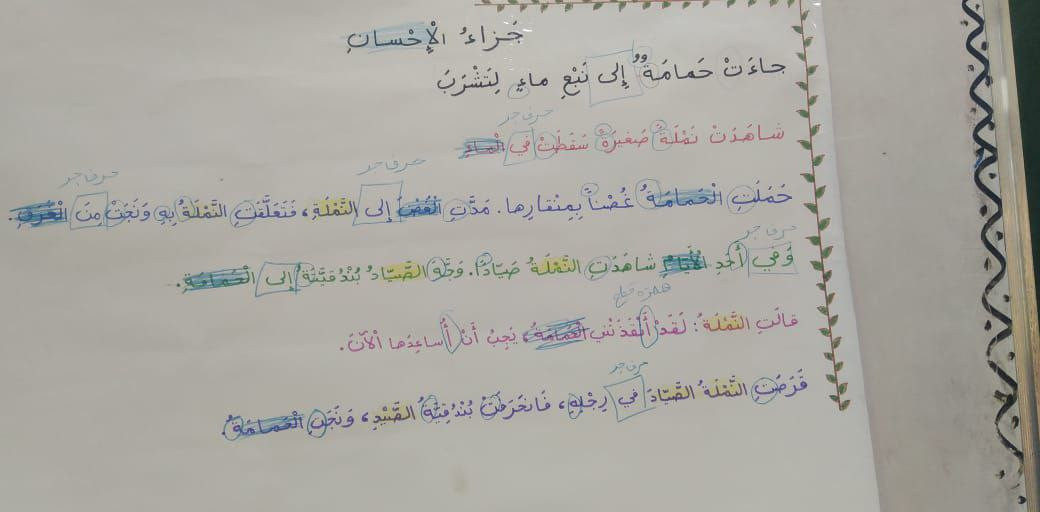 جَزاءُ الْإِحْسانِ
جاءَتْ حَمامَةٌ إِلى نَبْعِ ماءٍ لِتَشْرَبَ
حرف جر
شاهَدَتْ نَمْلَةً صَغيرَةً سَقَطَتْ في الْماءِ
حرف جر
حرف جر
حَمَلَتِ الْحَمامَةُ غُصْناً بِمِنْقارِها. مَدَّتِ الْغُصْنَ إِلى النَّمْلَةِ، فَتَعَلَّقَتِ النَّمْلَةُ بِهِ وَنَجَتْ مِنَ الْغَرَقِ.
حرف جر
وَفي أَحَدِ الْأَيّامِ شاهَدَتِ النَّمْلَةُ صَيّادًا. وَجَّهَ الصَّيّادُ بُنْدُقِيَّتَهُ إِلى الْحَمامَةِ.
همزة قطع
قالَتِ النَّمْلَةُ: لَقَدْ أَنْقَذَتْني الْحَمامَةُ، يَجِبُ أَنْ أُساعِدَها الْآنَ.
حرف جر
قَرَصَتِ النَّمْلَةُ الصَّيّادَ في رِجْلِهِ، فَانْحَرَفَتْ بُنْدُقِيَّةُ الصَّيْدِ، وَنَجَتِ الْحَمامَةُ.